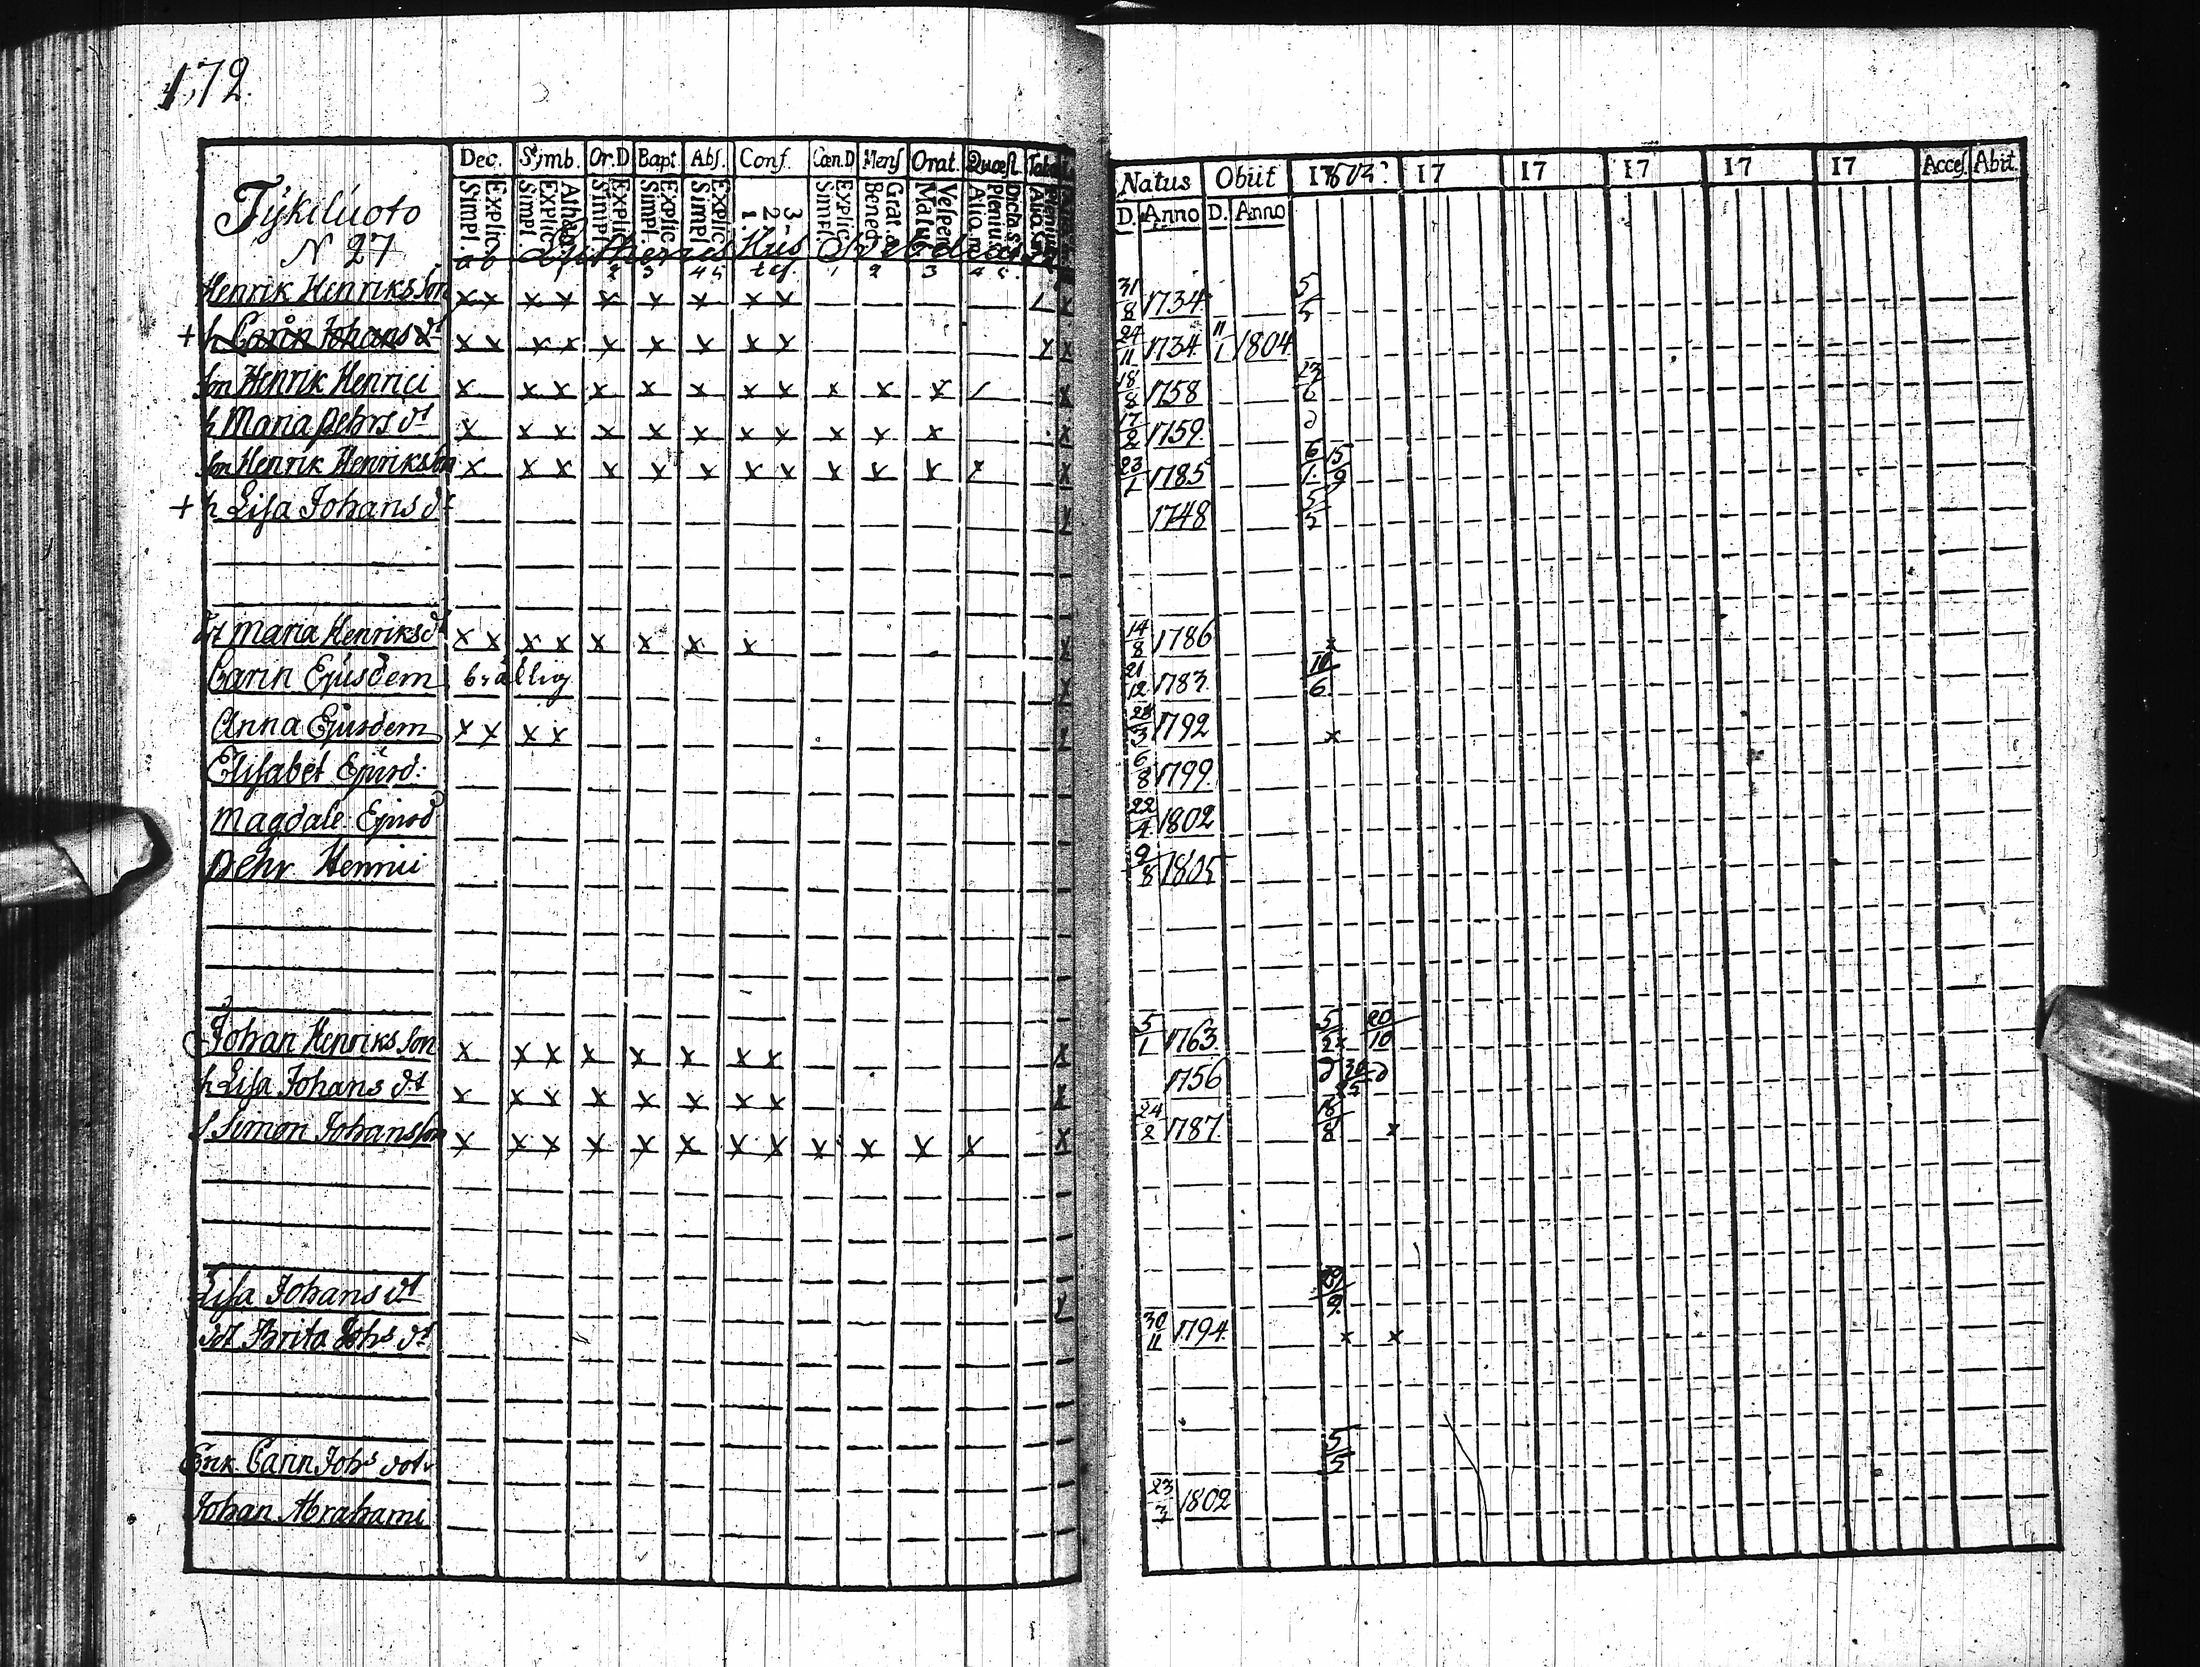 172.
Dec. Simb. Or.D Bapt. Abs. Conf. Cœn.D Mens Orat. Quæst.
Natus Obiit 17 17 17 17 17 Acces. Abit.
D. Anno D. Anno
Simpl. Explic. Simpl. Explic. Athan. Simpl. Explic. Simpl. Explic. Simpl. Explic. 1. 2. 3. Simpl. Explic. Bened. Grat. a Matut. Vesper.
Tykiluoto
N 27
a b Hus
Henrik Henriksson x x x x x x x x x 31/8 1734 5/5
+ h Carin Johans dt x x x x x x x x x 24/11 1734 11/1 1804
son Henrik Henrici x x x x x x x x x x x 18/8 1758 23/6
h Maria Pehrs dt x x x x x x x x x x x 17/2 1759
son Henrik Henriksson x x x x x x x x x x x x 23/1 1785 6/1 15/9
+ h Lisa Johans dt 1748 5/5
dt Maria Henriks dt x x x x x x x x 14/8 1786 x
Carin Ejusdem brållig 21/12 1783 10/6
Anna Ejusdem x x x x 1792 x
Elisabet Ejusd: 6/8 1799
Magdale Ejusd 22/4 1802
Pehr Henrici 9/8 1805
Johan Henriksson x x x x x x x x 5/1 1763 20/10
h Lisa Johans dt x x x x x x x x 1756
S Simon Johansson x x x x x x x x x x x x 24/2 1787 x
Lisa Johans dt
dt Brita Johs dt 30/11 1794 x x
Enk. Carin Johs dotr 5/5
Johan Abrahami 23/3 1802